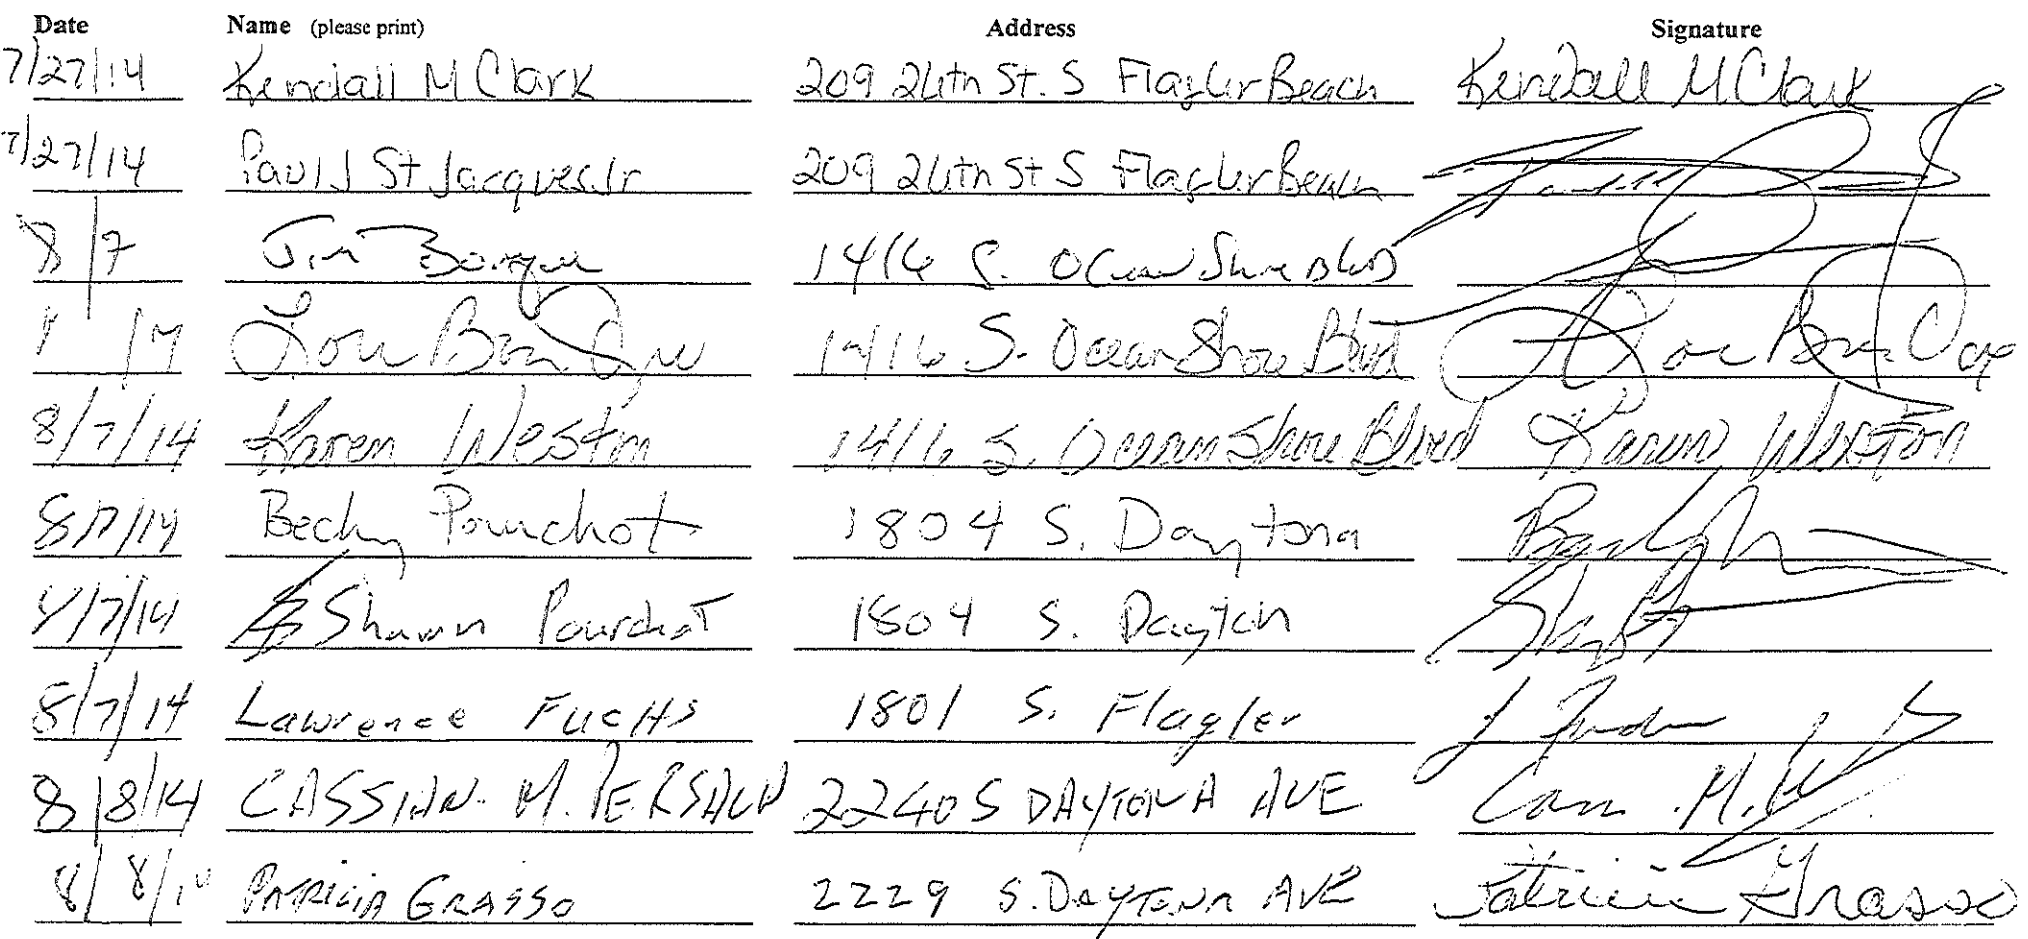 Date Name (please print) Address Signature
7/27/14 Kendall M Clark 209 26th St. S Flagler Beach Kendall M Clark
7/27/14 Paul J St Jacques Jr 209 26th St S Flagler Beach
8/7 Jim 1416 S. Ocean Shore Blvd
/7 Lou 1416 S. Ocean Shore Blvd Lou
8/7/14 Karen Weston 1416 S. Ocean Shore Blvd Karen Weston
8/7/14 Becky Pourchot 1804 S. Daytona
8/7/14 Shawn Pourchot 1804 S. Dayton
8/7/14 Lawrence FucHs 1801 S. Flagler
8/8/14 CASSIAN M. PERSAUD 2240 S DAYTONA AVE
8/8/14 PATRICIA GRASSO 2229 S. DAYTONA AVE Patricia Grasso